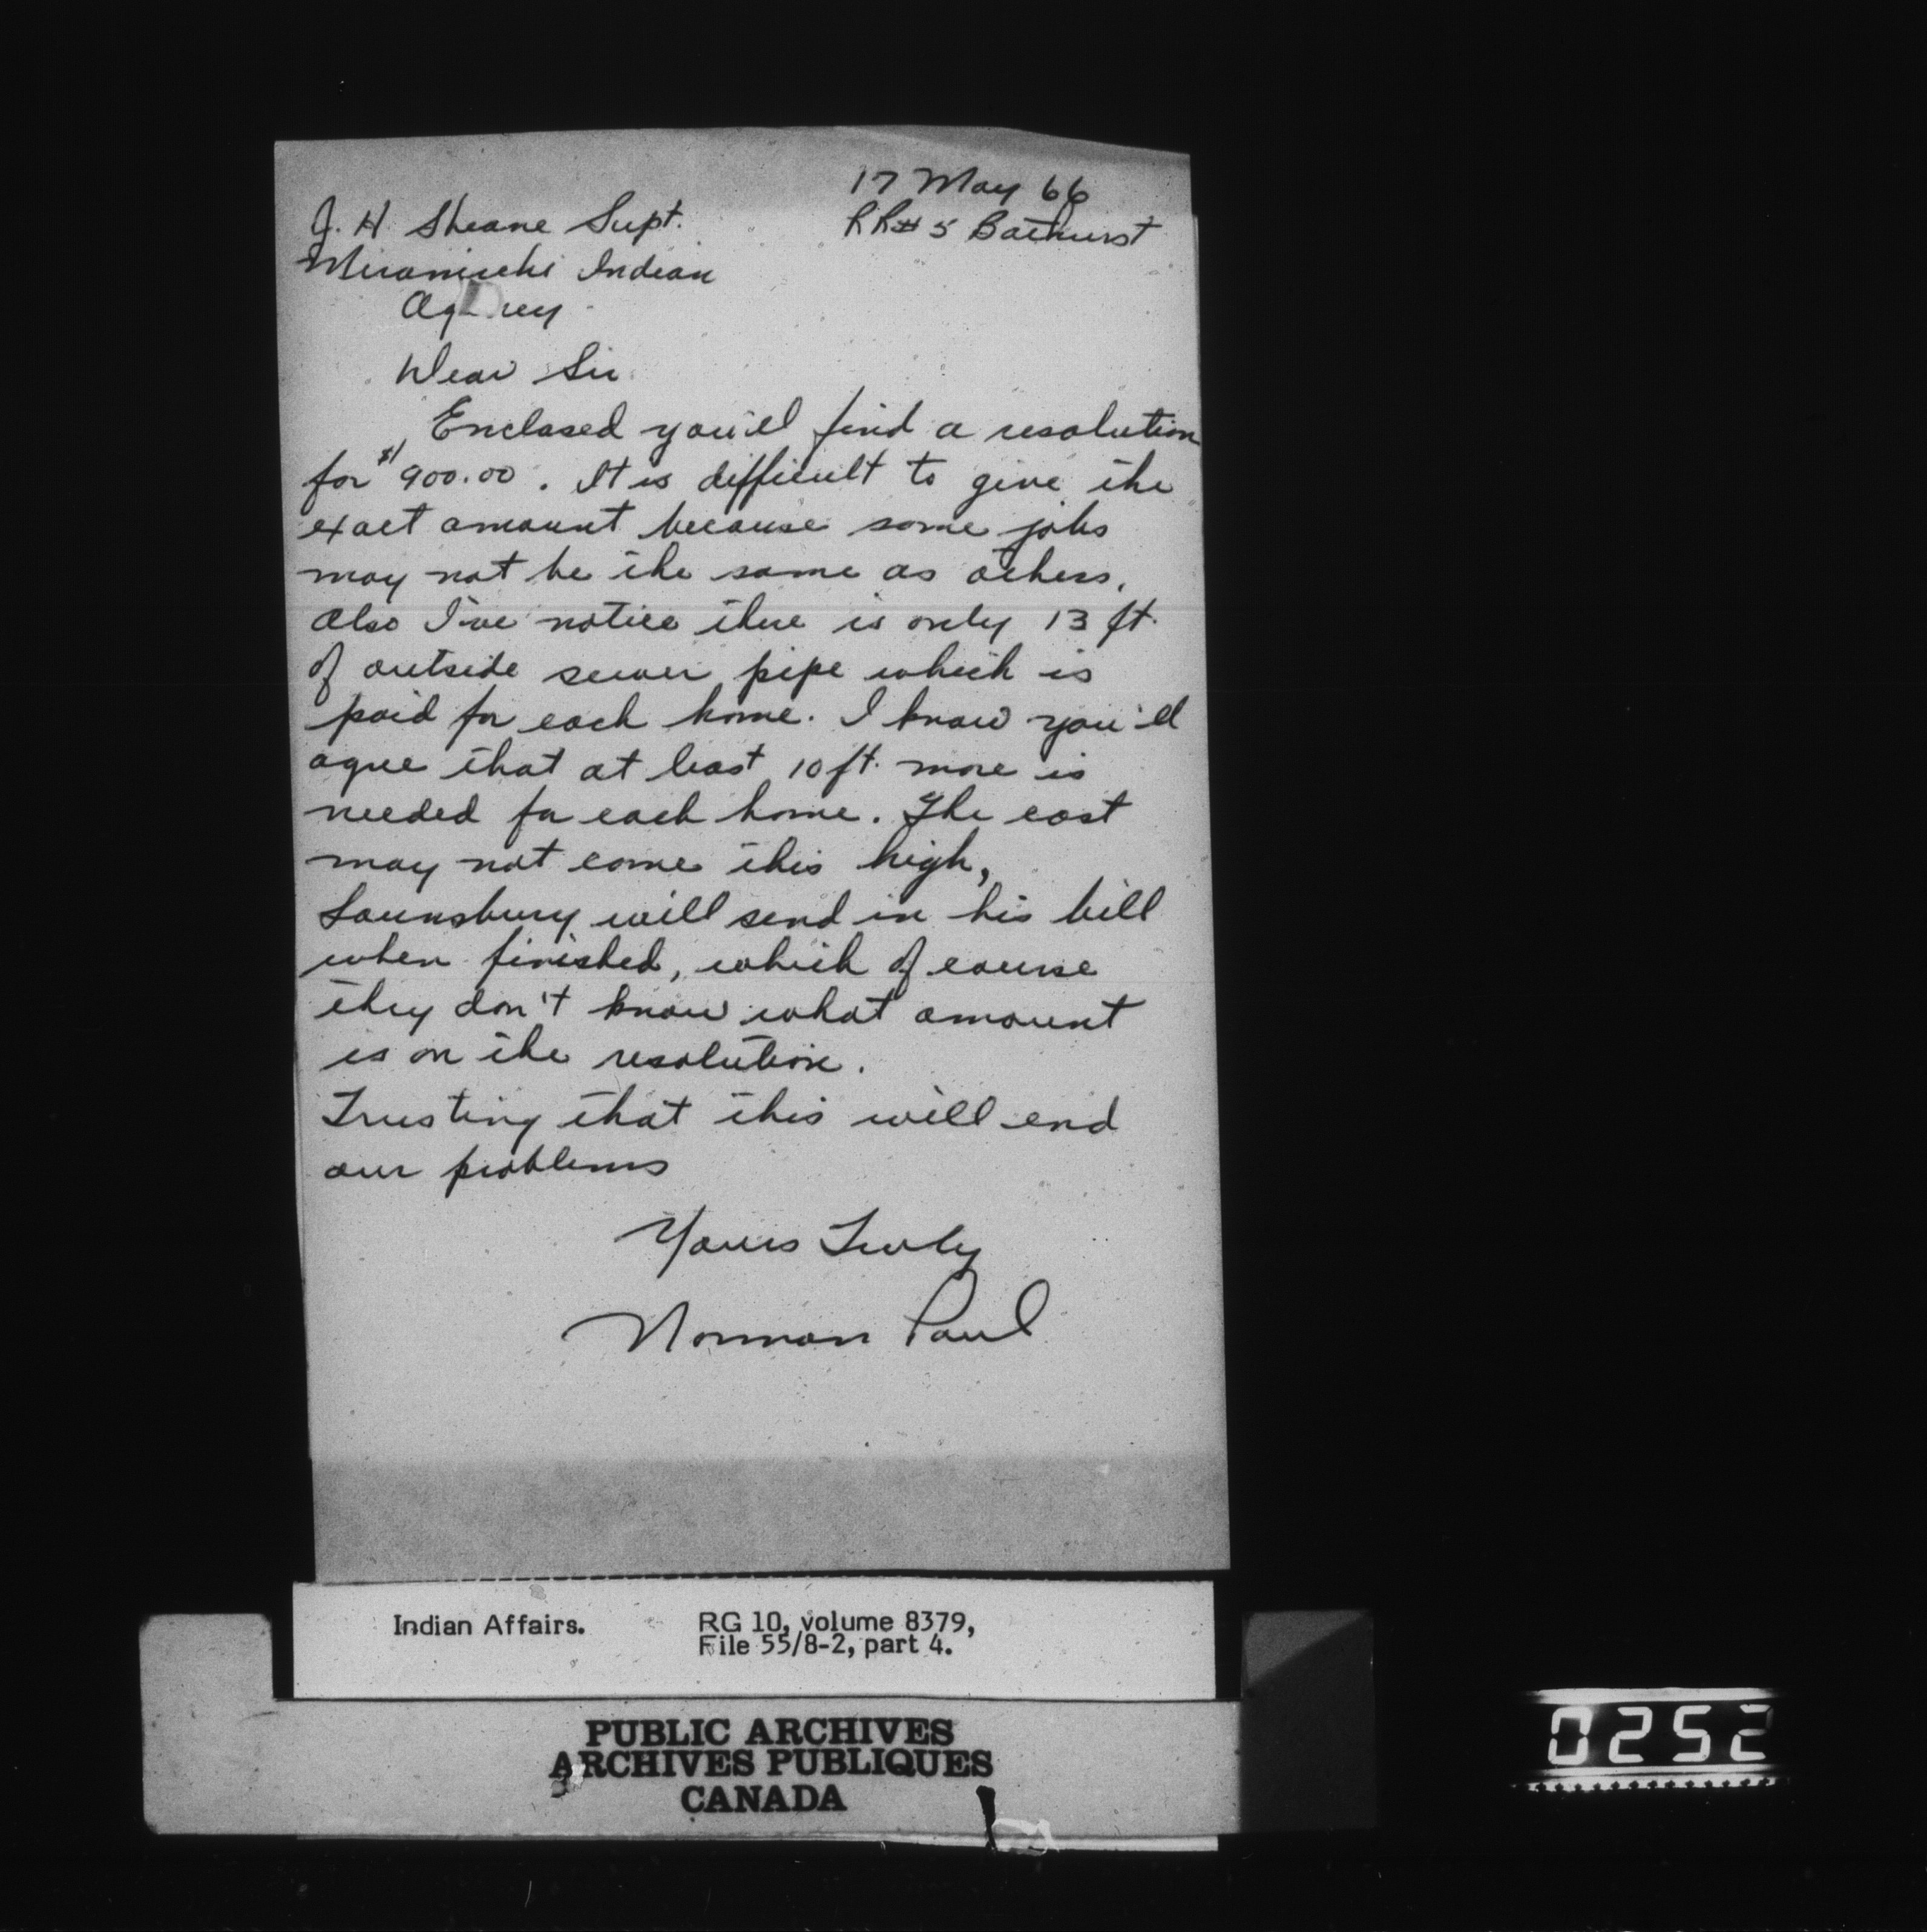 17 May 66
RR# 5 Bathurst
J. H. Sheane Supt.
Miramichi Indian
Agency
Dear Sir
Enclosed you'll find a resolution
for $900.00. It is difficult to give the
exact amount because some jobs
may not be the same as others.
Also I've notice there is only 13 ft.
of outside sewer pipe which is
paid for each home. I know you'll
agree that at least 10 ft. more is
needed for each home. The cost
may not come this high,
Lounsbury will send in his bill
when finished, which of course
they don't know what amount
is on the resolution.
Trusting that this will end
our problems
Yours Truly
Norman Paul
Indian Affairs. RG 10, volume 8379,
File 55/8-2, part 4.
PUBLIC ARCHIVES
ARCHIVES PUBLIQUES
CANADA
0252